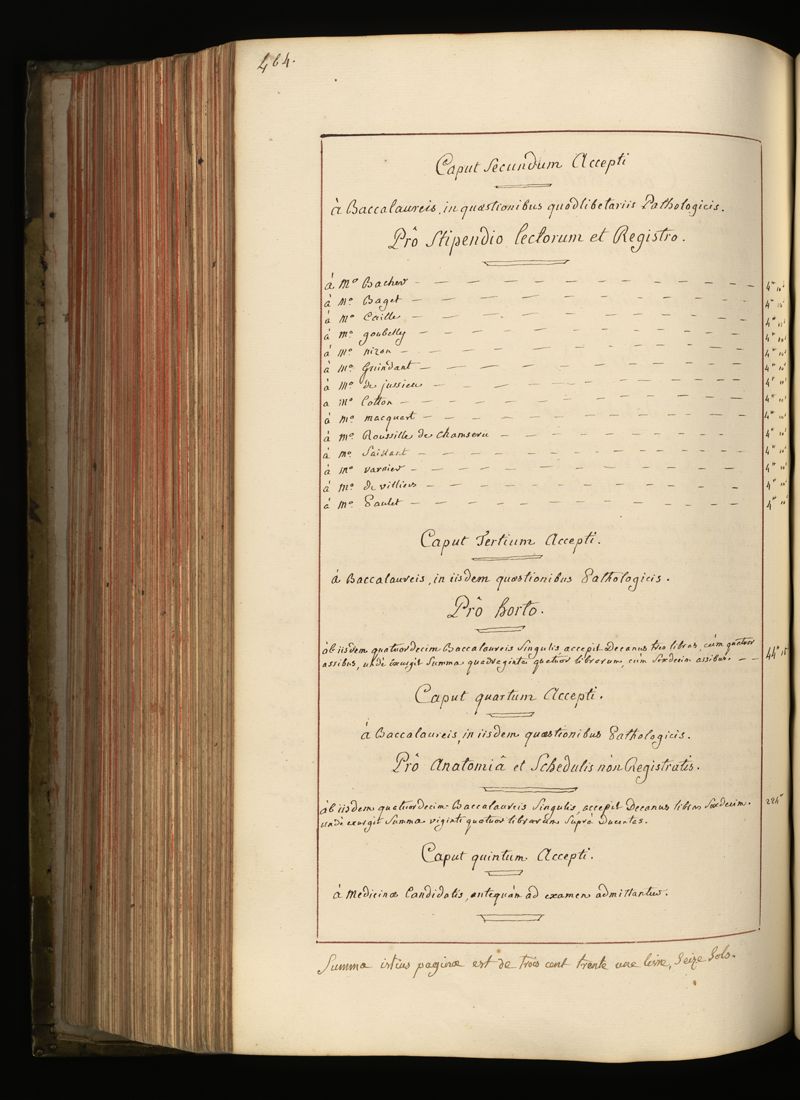 464.
Caput Secundum Accepti
à Baccalaureis, in quæstionibus quodlibetariis Pathologicis.
Prô Stipendio lectorum et Registro.
à Mo Bacher — 4tt
à Mo Baget — 4tt
à Mo Caille — 4tt
à mo goubelly — 4tt
à Mo nizon — 4tt
à Mo Guindant — 4tt
à Mo de jussieu — 4tt
a Mo Cotton — 4tt
à Mo macquart — 4tt
à Mo Roussille de Chamseru — 4tt
à Mo Saillant — 4tt
à mo varnier — 4tt
à Mo de villiers — 4tt
à Mo Paulet — 4tt
Caput Tertium Accepti.
à Baccalaureis, in iisdem quæstionibus Pathologicis.
Prô horto.
ab iisdem quatuordecim Baccalaureis Singulis, accepit Decanus tres libras, cum quatuor
assibus, undè exurgit Summa quadraginta quatuor librarum, cum Sexdecim assibus. — 44tt
Caput quartum Accepti.
à Baccalaureis, in iisdem quæstionibus Pathologicis.
Prô Anatomiâ et Schedulis nòn Registratis.
ab iisdem quatuordecim Baccalaureis Singulis, accepit Decanus libras Sexdecim. 224tt
undè exurgit Summa viginti quatuor librarum Suprà Ducentas.
Caput quintum Accepti.
à Medicinæ Candidatis, antequàm ad examen admittantur.
Summa istius paginæ est de trois cent trente une livre, Seize Sols.